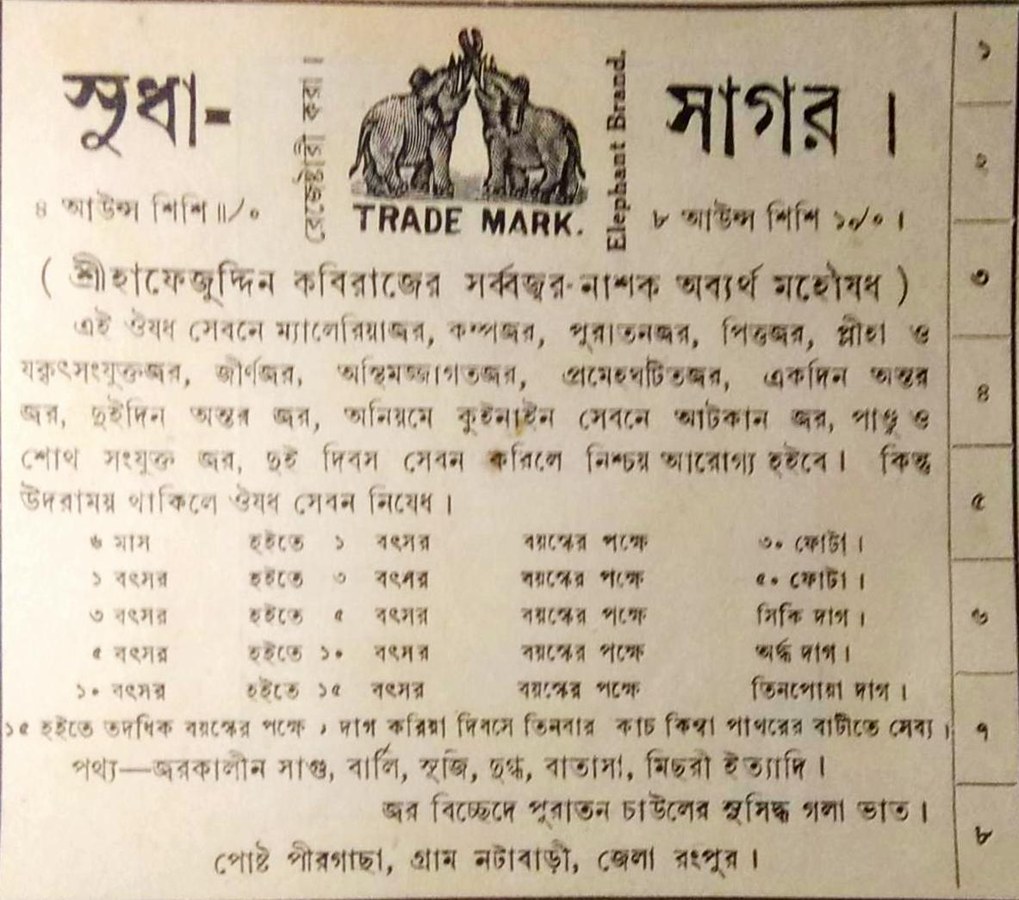 সুধা-সাগর।
রেজেষ্টারী করা।
Elephant Brand.
TRADE MARK.
৪ আউন্স শিশি ॥৵০
৮ আউন্স শিশি ১৵০।
( শ্রীহাফেজুদ্দিন কবিরাজের সর্ব্বজ্বর-নাশক অব্যর্থ মহৌষধ )
এই ঔষধ সেবনে ম্যালেরিয়াজ্বর, কম্পজ্বর, পুরাতনজ্বর, পিত্তজ্বর, প্লীহা ও
যকৃৎসংযুক্তজ্বর, জীর্ণজ্বর, অস্থিমজ্জাগতজ্বর, প্রমেহঘটিতজ্বর, একদিন অন্তর
জ্বর, দুইদিন অন্তর জ্বর, অনিয়মে কুইনাইন সেবনে আটকান জ্বর, পাণ্ডু ও
শোথ সংযুক্ত জ্বর, দুই দিবস সেবন করিলে নিশ্চয় আরোগ্য হইবে। কিন্তু
উদরাময় থাকিলে ঔষধ সেবন নিষেধ।
৬ মাস হইতে ১ বৎসর বয়স্কের পক্ষে ৩০ ফোটা।
১ বৎসর হইতে ৩ বৎসর বয়স্কের পক্ষে ৫০ ফোটা।
৩ বৎসর হইতে ৫ বৎসর বয়স্কের পক্ষে সিকি দাগ।
৫ বৎসর হইতে ১০ বৎসর বয়স্কের পক্ষে অর্দ্ধ দাগ।
১০ বৎসর হইতে ১৫ বৎসর বয়স্কের পক্ষে তিনপোয়া দাগ।
১৫ হইতে তদধিক বয়স্কের পক্ষে ১ দাগ করিয়া দিবসে তিনবার কাচ কিম্বা পাথরের বাটীতে সেব্য।
পথ্য—জ্বরকালীন সাগু, বার্লি, সুজি, দুগ্ধ, বাতাসা, মিছরী ইত্যাদি।
জ্বর বিচ্ছেদে পুরাতন চাউলের সুসিদ্ধ গলা ভাত।
পোষ্ট পীরগাছা, গ্রাম নটাবাড়ী, জেলা রংপুর।
১
২
৩
৪
৫
৬
৭
৮